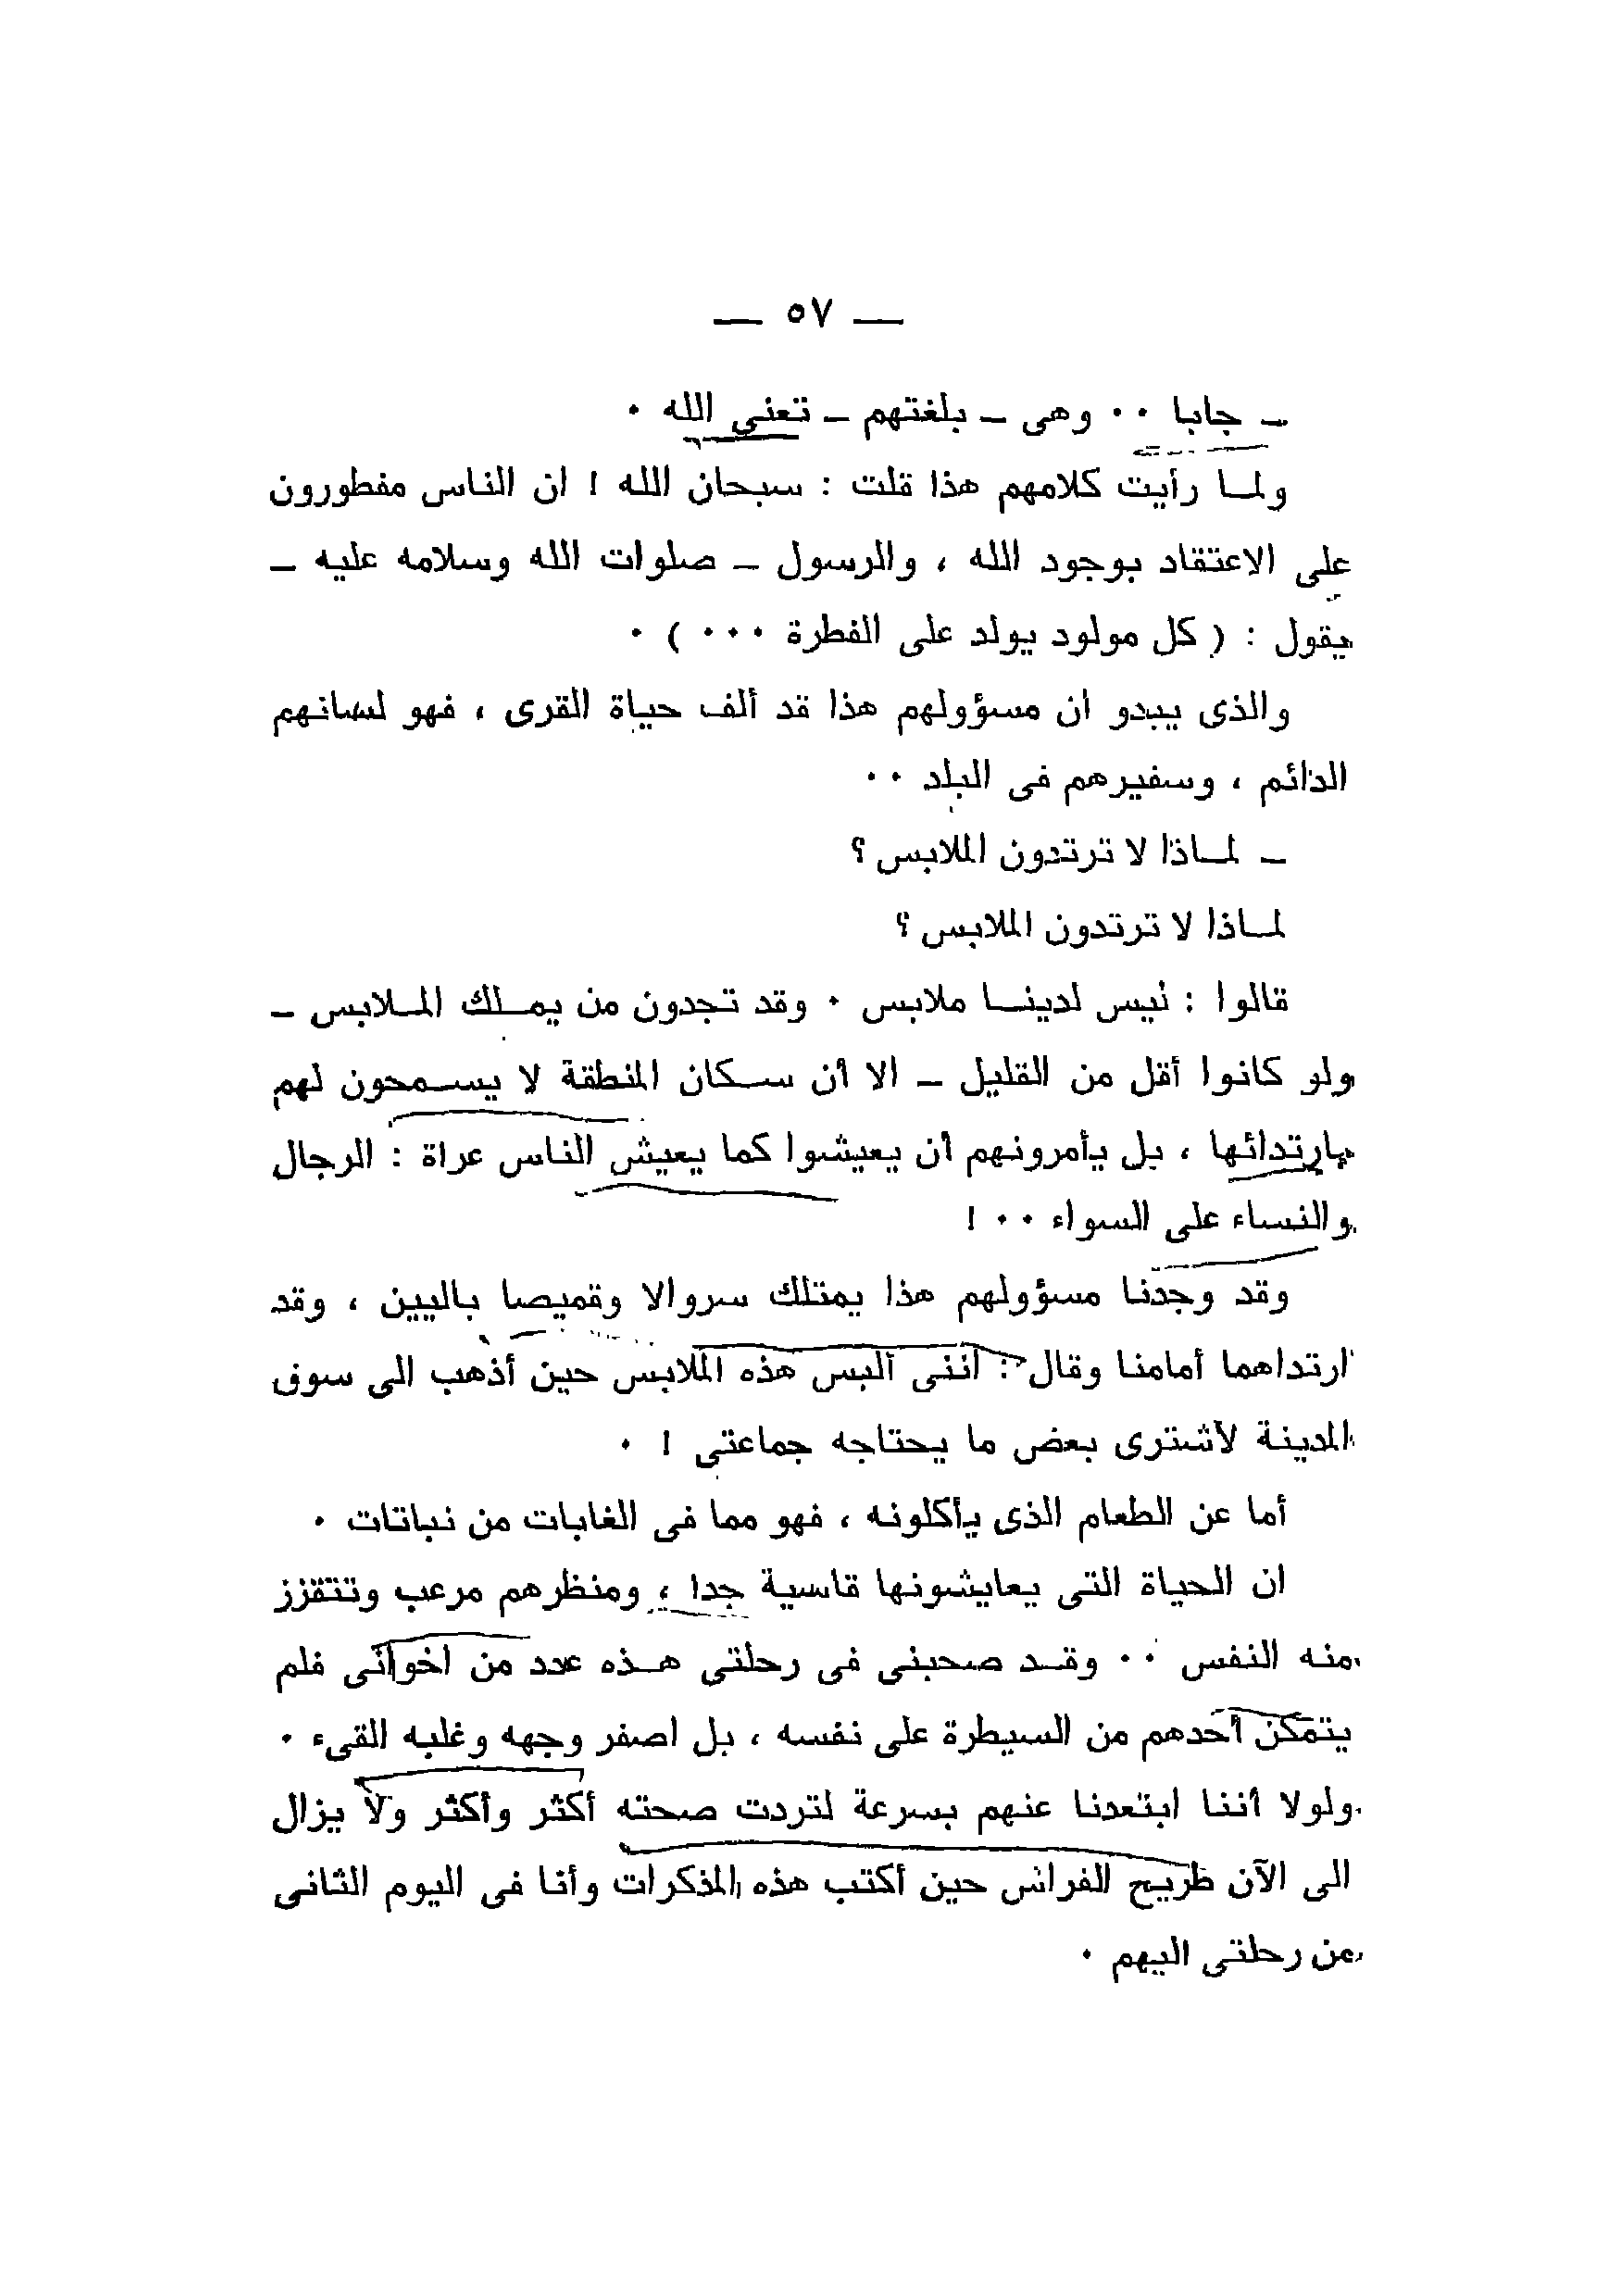 — ٥٧ —
– جابا ٠٠ وهى – بلغتهم – تعنى الله ٠
ولما رأيت كلامهم هذا قلت : سبحان الله ! ان الناس مفطورون
على الاعتقاد بوجود الله ، والرسول – صلوات الله وسلامه عليه –
يقول : ( كل مولود يولد على الفطرة ٠٠٠ ) ٠
والذى يبدو ان مسؤولهم هذا قد ألف حياة القرى ، فهو لسانهم
الدائم ، وسفيرهم فى البلد ٠٠
– لماذا لا ترتدون الملابس ؟
لماذا لا ترتدون الملابس ؟
قالوا : ليس لدينا ملابس ٠ وقد تجدون من يملك الملابس –
ولو كانوا أقل من القليل – الا أن سكان المنطقة لا يسمحون لهم
بارتدائها ، بل يأمرونهم أن يعيشوا كما يعيش الناس عراة : الرجال
والنساء على السواء ٠٠ !
وقد وجدنا مسؤولهم هذا يمتلك سروالا وقميصا باليين ، وقد
ارتداهما أمامنا وقال : اننى ألبس هذه الملابس حين أذهب الى سوق
المدينة لأشترى بعض ما يحتاجه جماعتى ! ٠
أما عن الطعام الذى يأكلونه ، فهو مما فى الغابات من نباتات ٠
ان الحياة التى يعايشونها قاسية جدا ، ومنظرهم مرعب وتتقزز
منه النفس ٠٠ وقد صحبنى فى رحلتى هذه عدد من اخوانى فلم
يتمكن أحدهم من السيطرة على نفسه ، بل اصفر وجهه وغلبه القىء ٠
ولولا أننا ابتعدنا عنهم بسرعة لتردت صحته أكثر وأكثر ولا يزال
الى الآن طريح الفراش حين أكتب هذه المذكرات وأنا فى اليوم الثانى
من رحلتى اليهم ٠